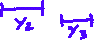 y₂
y₃